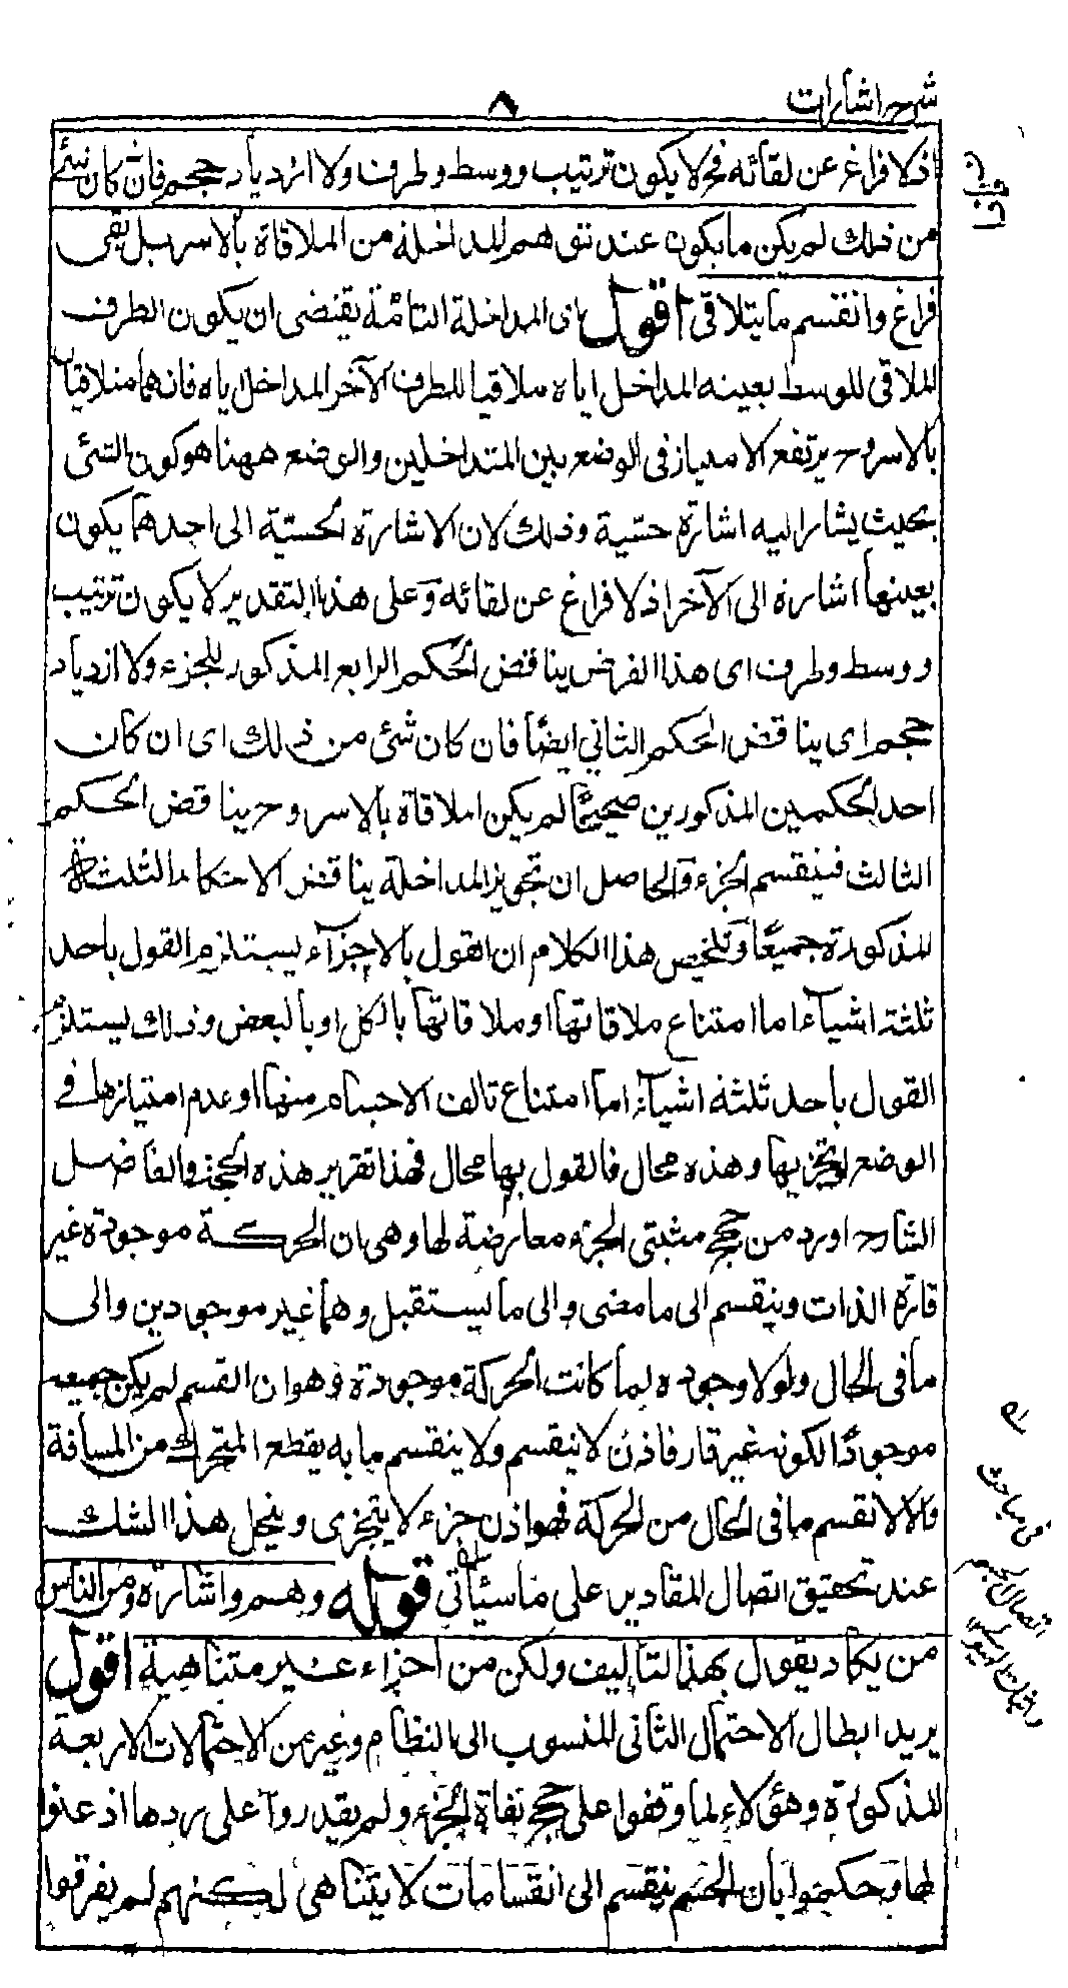 شرح اشارات
٨
اذ لا فراغ عن لقائه فح لا يكون ترتيب ووسط وطرف ولا ازدياد حجم فان كان شئ
من ذلك لم يكن ما يكون عند توهم المداخلة من الملاقاة بالاسر بل بقى
فراغ وانقسم ما يتلاقى اقول اى المداخلة التامة يقتضى ان يكون الطرف
الملاقى للوسط بعينه المداخل اياه ملاقيا للطرف الآخر المداخل اياه فانهما متلاقيان
بالاسر وح يرتفع الامتياز فى الوضع بين المتداخلين والوضع ههنا هو كون الشئ
بحيث يشار اليه اشارة حسّية وذلك لان الاشارة الحسّية الى احدهما يكون
بعينها اشارة الى الآخر اذ لا فراغ عن لقائه وعلى هذا التقدير لا يكون ترتيب
ووسط وطرف اى هذا الفرض يناقض الحكم الرابع المذكور للجزء ولا ازدياد
حجم اى يناقض الحكم الثانى ايضًا فان كان شئ من ذلك اى ان كان
احد الحكمين المذكورين صحيحًا لم يكن املاقاة بالاسر وح يناقض الحكم
الثالث فينقسم الجزء والحاصل ان تجويز المداخلة يناقض الاحكام الثلثة
المذكورة جميعًا وتلخيص هذا الكلام ان القول بالاجزآء يستلزم القول باحد
ثلثة اشيآء اما امتناع ملاقاتها او ملاقاتها بالكل او بالبعض وذلك يستلزم
القول باحد ثلثة اشيآء اما امتناع تالف الاجسام منها او عدم امتيازها فے
الوضع او تجزيها وهذه محال فالقول بها محال فهذا تقرير هذه الحجة والفاضل
الشارح اورد من حجج مثبتى الجزء معارضة لها وهى ان الحركة موجودة غير
قارة الذات وينقسم الى ما مضى والى ما يستقبل وهما غير موجودين والى
ما فى الحال ولولا وجوده لما كانت الحركة موجودة وهو ان القسم لم يكن جميعه
موجودًا لكونه غير قار فاذن لا ينقسم ولا ينقسم ما به يقطع المتحرك من المسافة
والا لانقسم ما فى الحال من الحركة فهو اذن جزء لا يتجزى وينحل هذا الشك
عند تحقيق اتصال المقادير على ما سيأتى قوله وهم واشارة ومن الناس
من يكاد يقول بهذا التأليف ولكن من اجزاء غير متناهية اقول
يريد ابطال الاحتمال الثانى المنسوب الى النظام وغيره من الاحتمالات الاربعة
المذكورة وهؤلاء لما وقفوا على حجج نفاة الجزء ولم يقدروا على ردها اذعنوا
لها وحكموا بأن الجسم ينقسم الى انقسامات لا يتناهى لكنهم لم يفرقوا
فى مباحث
اتصال الجسم